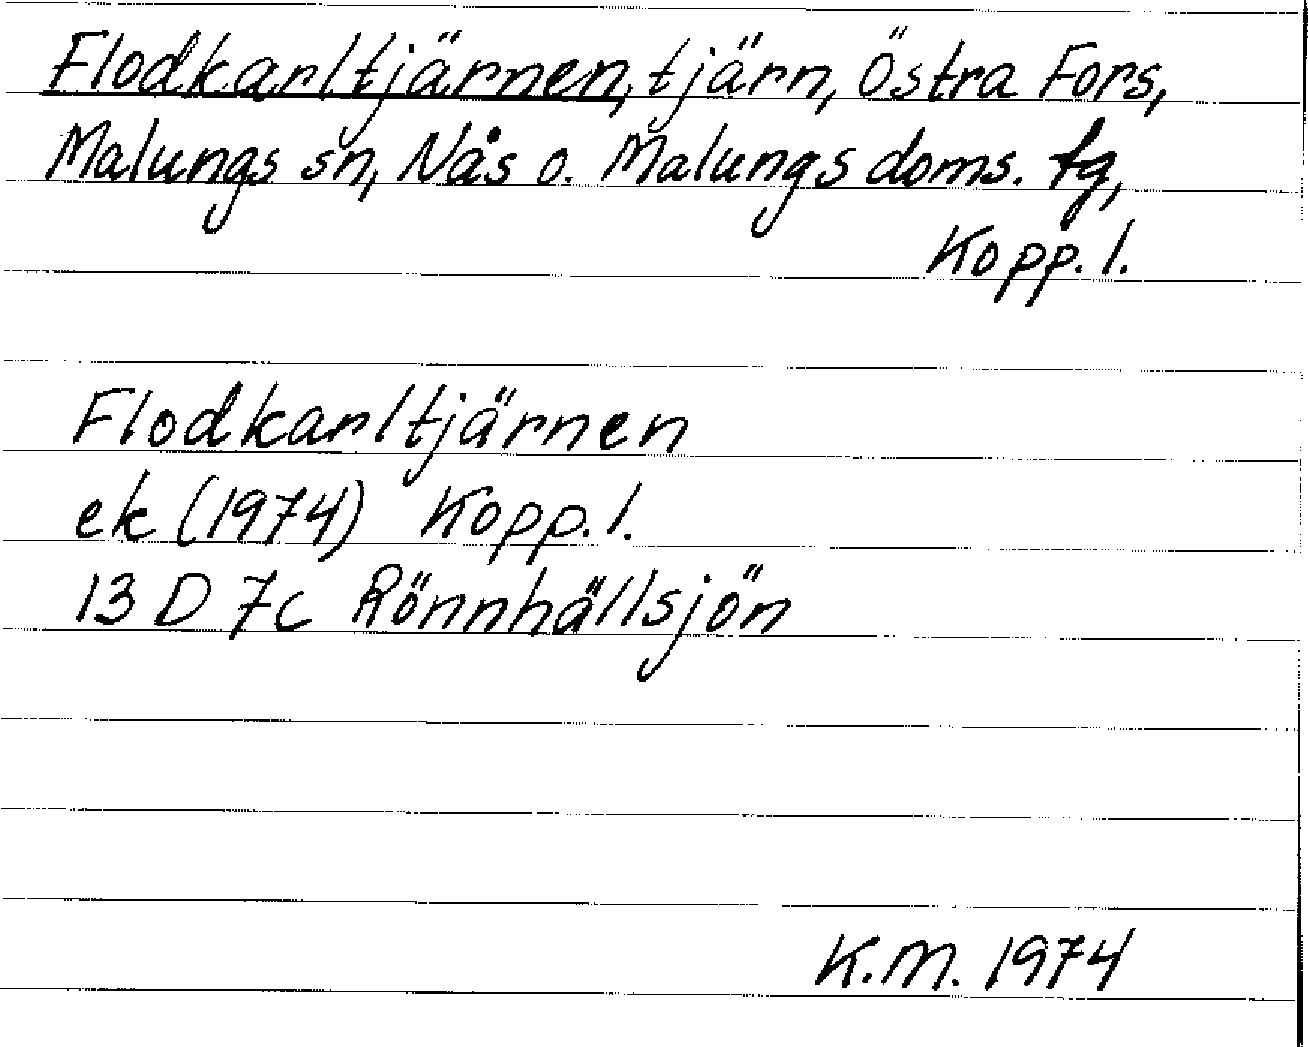 Flodkarltjärnen, tjärn, Östra Fors,
Malungs sn, Nås o. Malungs doms. tg,
Kopp. l.
Flodkarltjärnen
ek (1974) Kopp. l.
13 D 7c Rönnhällsjön
K.M. 1974